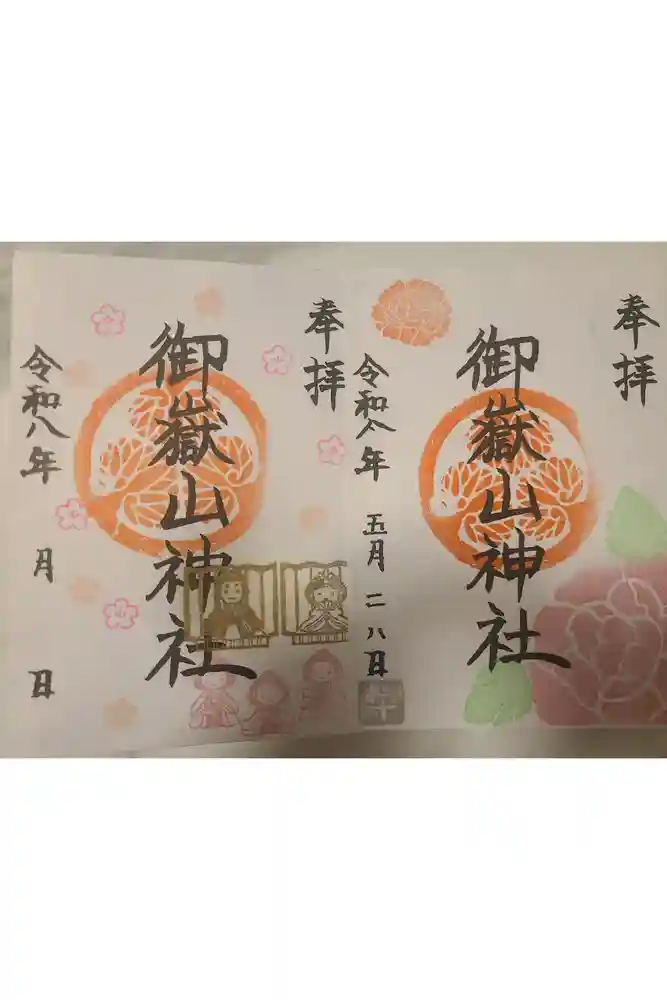 奉拝
御嶽山神社
令和八年 五月 二八日
午
奉拝
御嶽山神社
令和八年 月 日